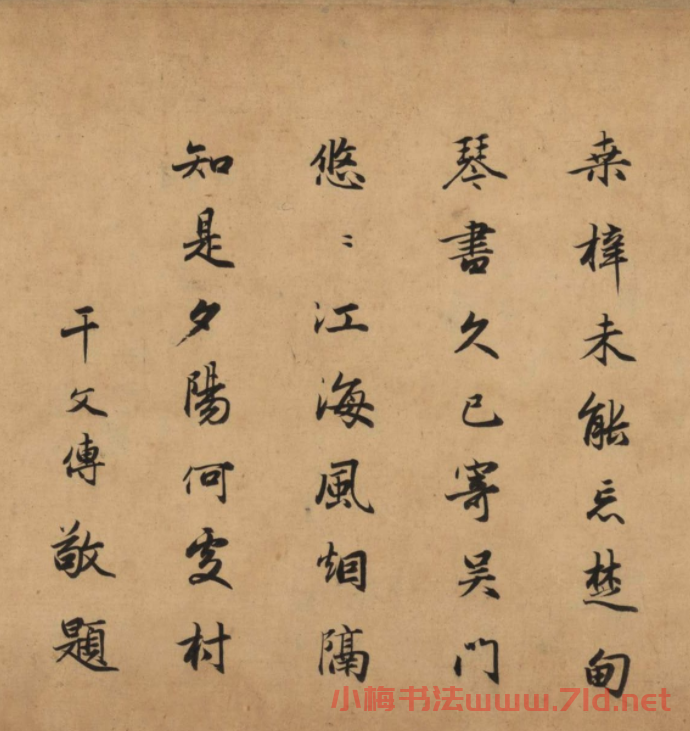 桒梓未能忘楚甸
琴書久已寄吴門
悠〻江海風烟隔
知是夕陽何處村
干文傳敬題
小梅书法www.7ld.net